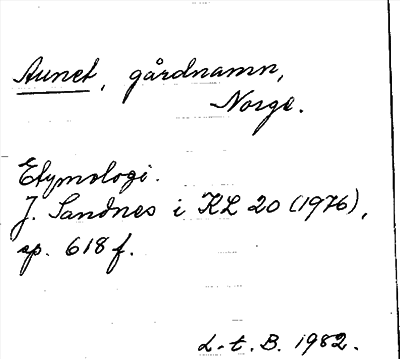 Aunet, gårdnamn,
Norge.
Etymologi.
J. Sandnes i KL 20 (1976),
sp. 618 f.
L-t. B. 1982.